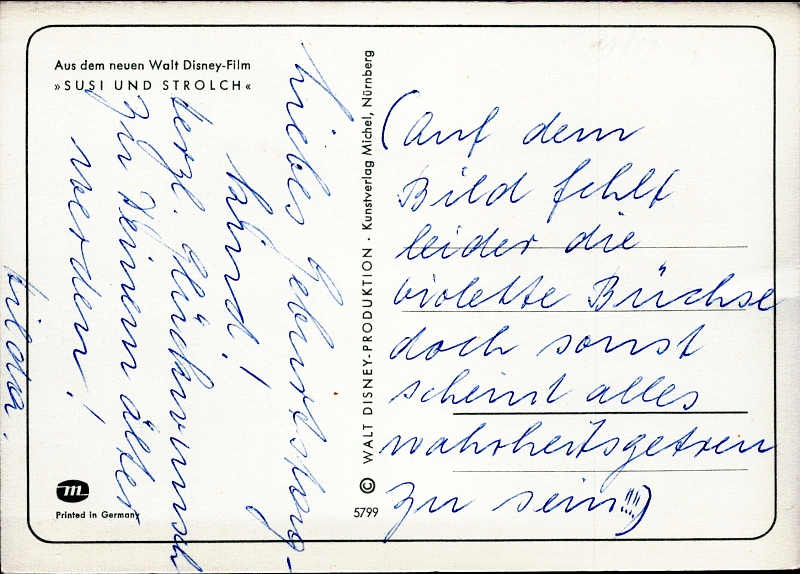 Aus dem neuen Walt Disney-Film
»SUSI UND STROLCH«
Liebes Geburtstags-
kind!
herzl. Glückwunsch
zu Deinem älter
werden!
Hilda.
© WALT DISNEY-PRODUKTION · Kunstverlag Michel, Nürnberg
(Auf dem
Bild fehlt
leider die
violette Büchse
doch sonst
scheint alles
wahrheitsgetreu
zu sein!!!)
m
Printed in Germany
5799